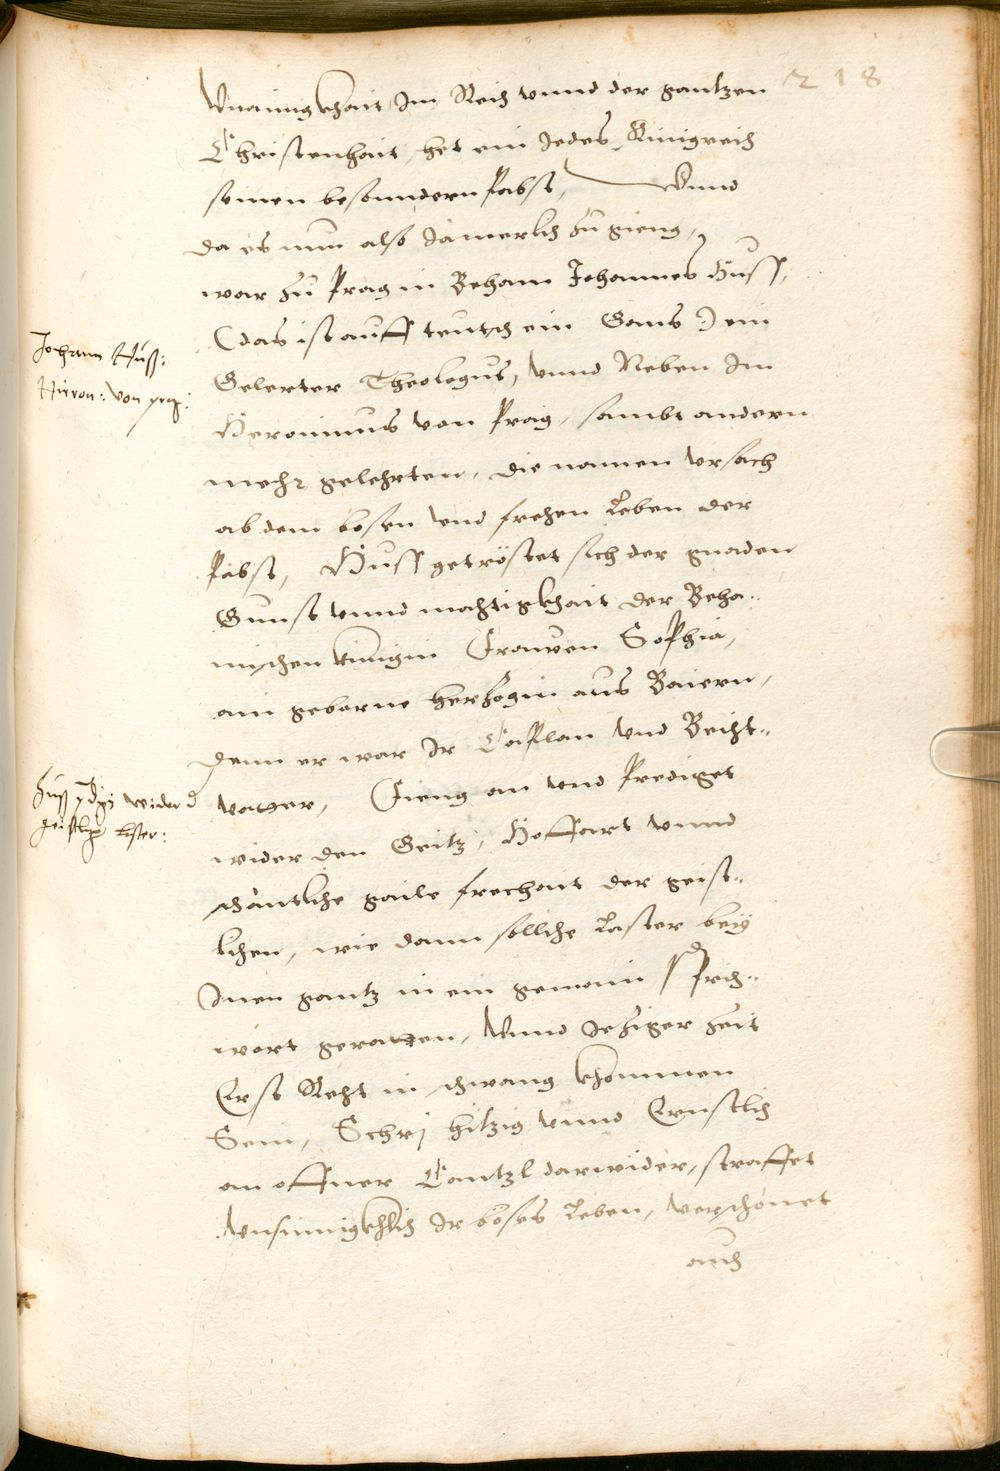 218
Vnainigkhait, Im Reich vnnd der gantzen
Christenhait, het ein Jedes Künigreich
seinen besonndern Pabst, Vnnd
da es nun also Jamerlich zu gieng,
war zu Prag in Beham Johannes Huss,
(das ist auff teutsch ein Gans) ein
Gelerter Theologus, vnnd Neben Im
Heronimus von Prag, sambt andern
mehr gelehrten, die namen vrsach
ab dem bösen vnd frehen Leben der
Päbst, Huss getröstet sich der gnaden
Gunst vnnd machtigkhait der Beha-
mischen künigin Frauwen Sophia,
ain geborne Herzogin aus Baiern,
Denn er war Ir Caplan vnd Beicht-
vatter, Fieng an vnd Prediget
wider den Geitz, Hoffart vnnd
schäntliche gaile frechait der geist-
lichen, wie dann solliche Laster bey
Inen gantz in ein gemain Sprich-
wort geratten, Vnnd Jeziger Zeit
Erst Recht in schwang khommen
Sein, Schrj hitzig vnnd Ernstlich
an offner Cantzl darwider, straffet
Vnsinnigkhlich Ir böses Leben, verschonet
auch
Johann Huss:
Hieron: von prag:
Huss pdigt wider d
geistlich laster: